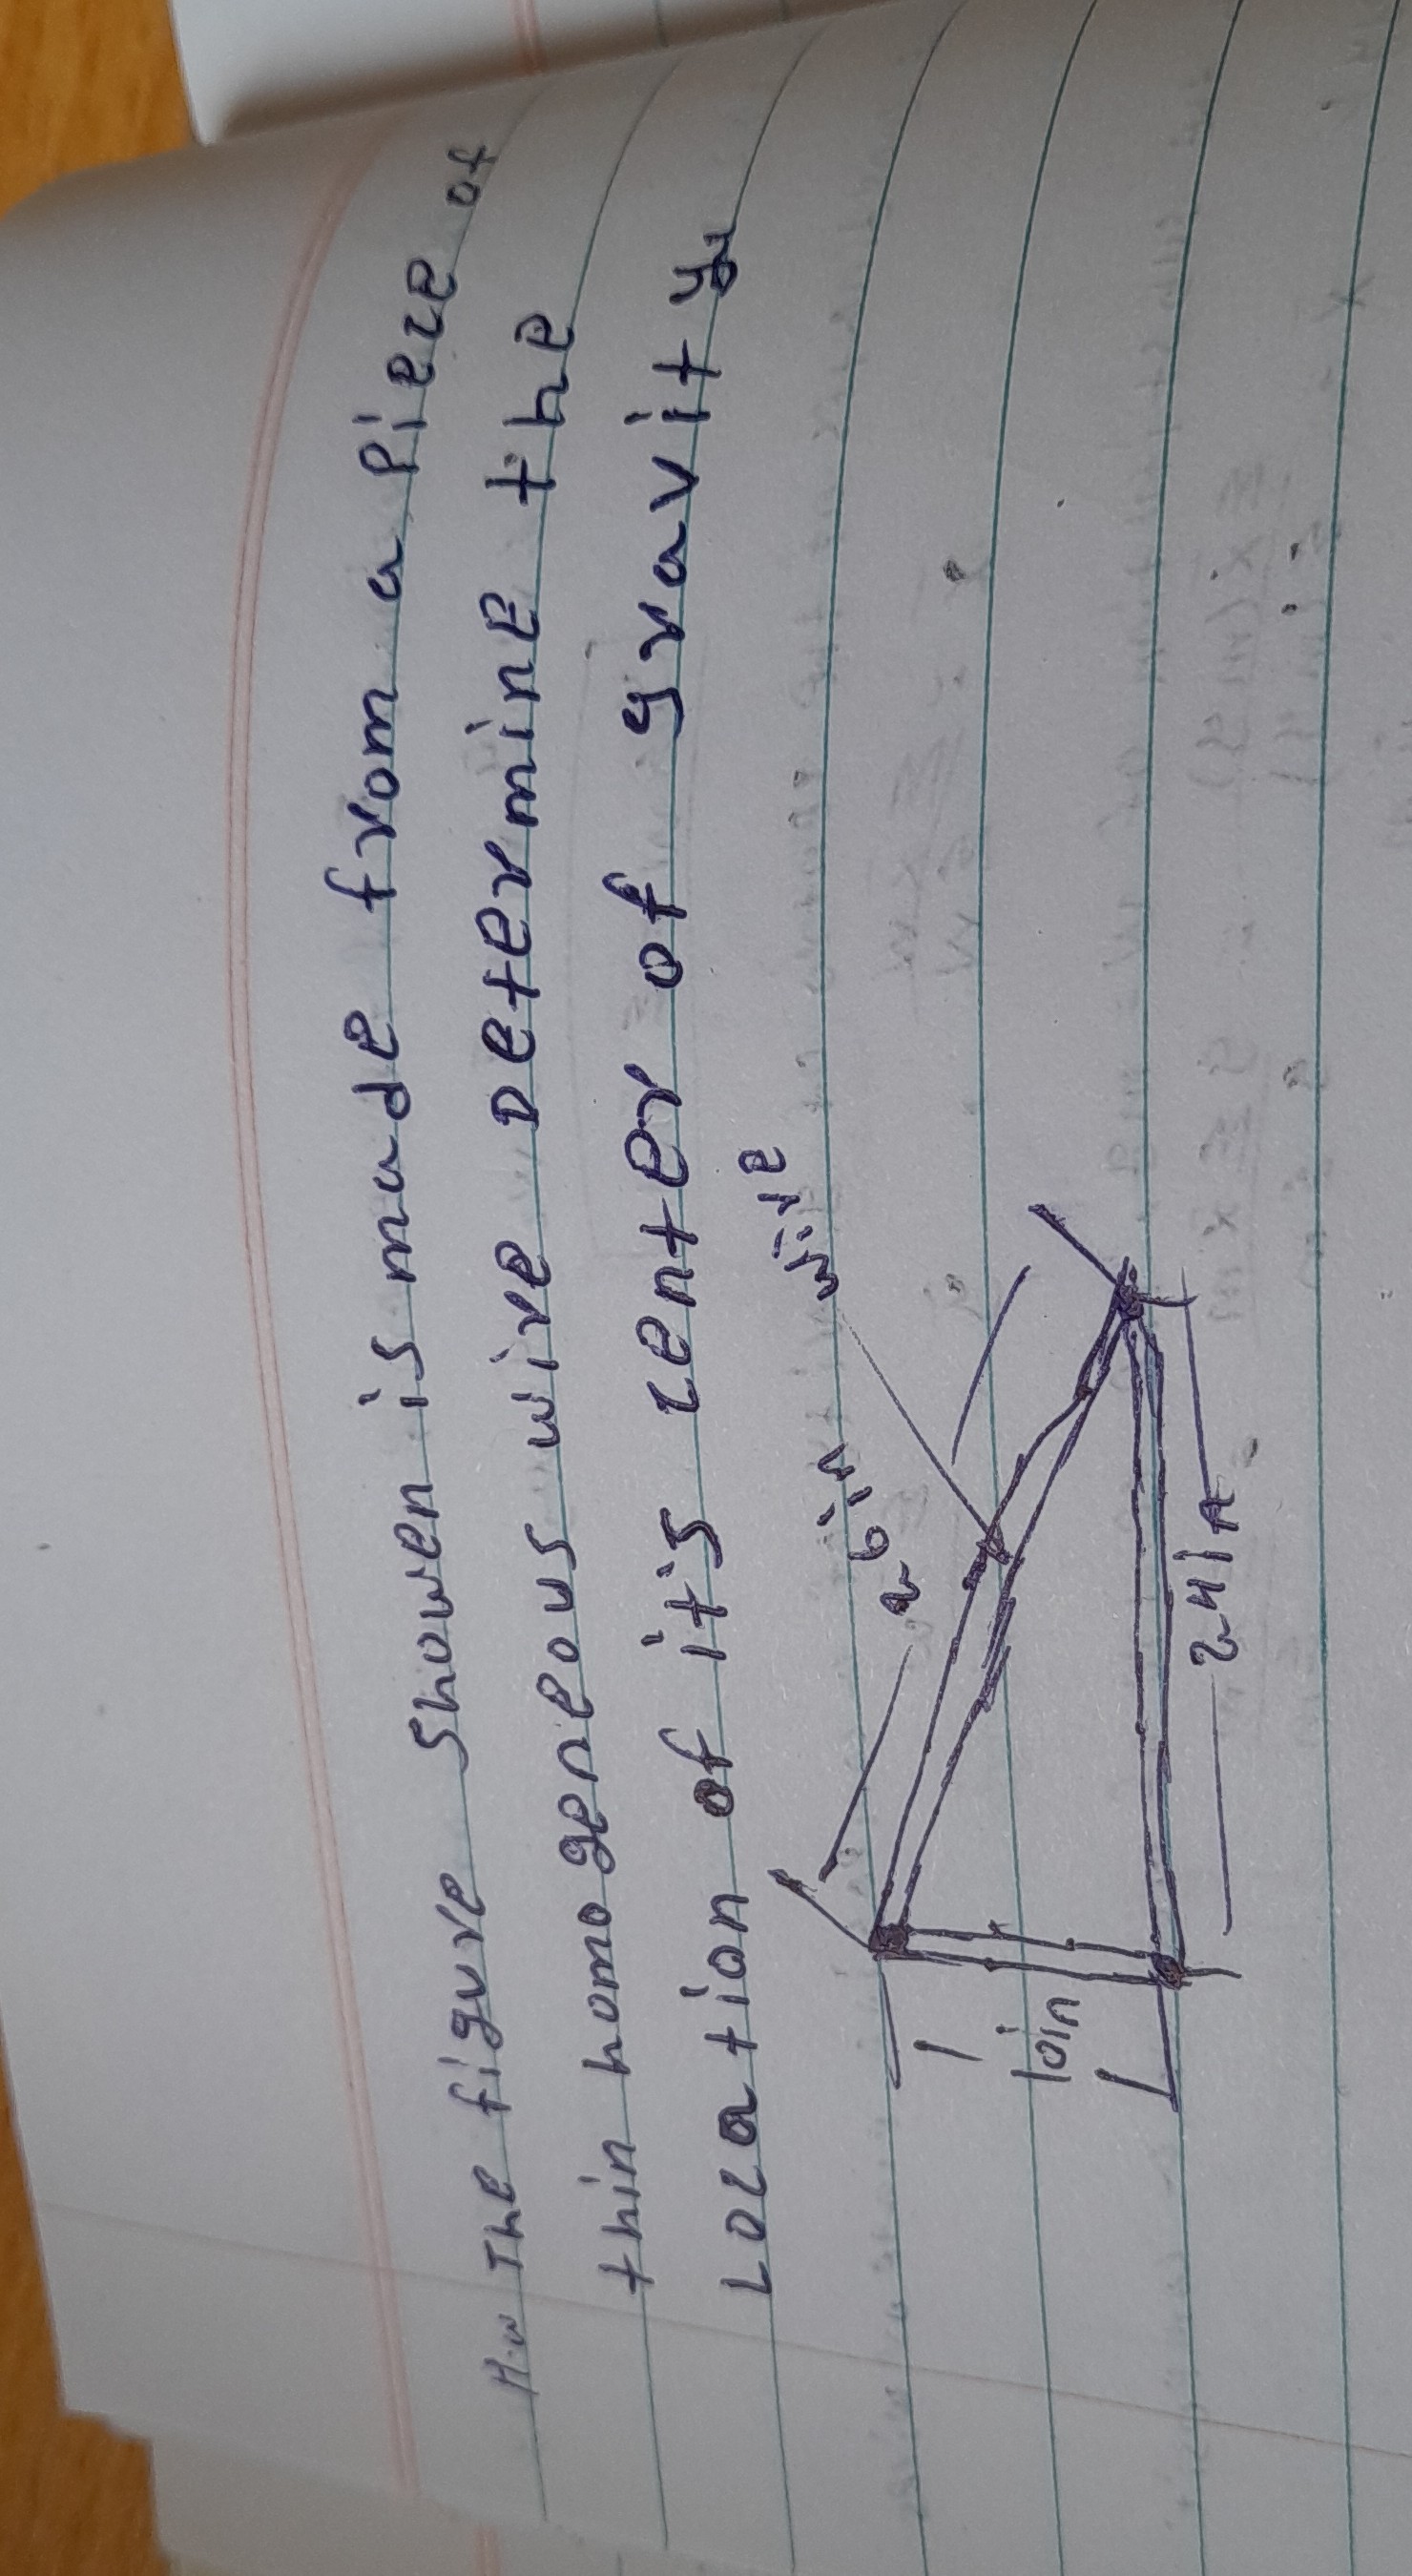 H.W The figure showen is made from a piece of
thin homogeneous wire determine the
Location of its center of gravity
wire
26in
10in
24in